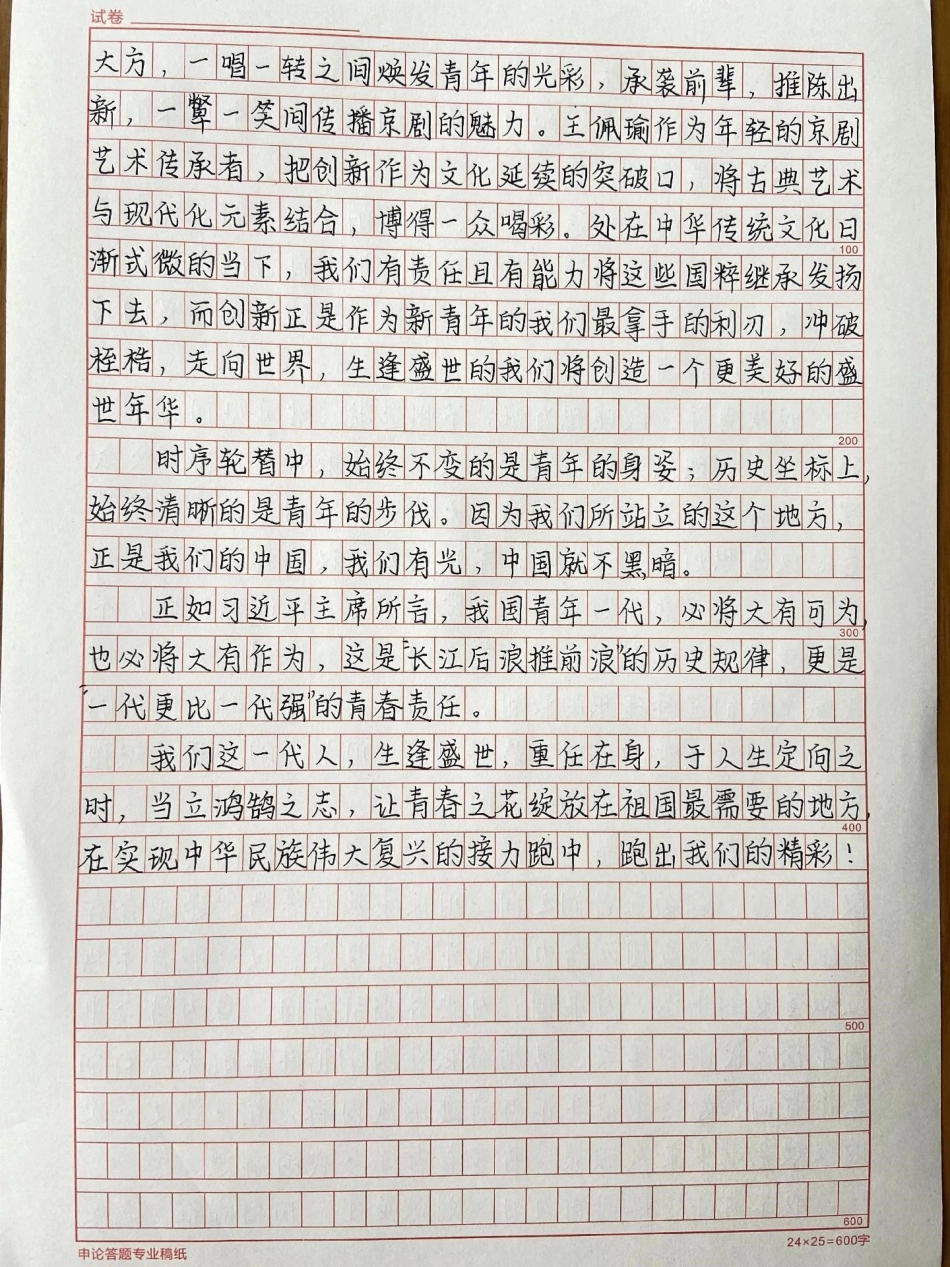 试卷
大方，一唱一转之间焕发青年的光彩，承袭前辈，推陈出
新，一颦一笑间传播京剧的魅力。王佩瑜作为年轻的京剧
艺术传承者，把创新作为文化延续的突破口，将古典艺术
与现代化元素结合，博得一众喝彩。处在中华传统文化日
100
渐式微的当下，我们有责任且有能力将这些国粹继承发扬
下去，而创新正是作为新青年的我们最拿手的利刃，冲破
桎梏，走向世界，生逢盛世的我们将创造一个更美好的盛
世年华。
200
时序轮替中，始终不变的是青年的身姿；历史坐标上，
始终清晰的是青年的步伐。因为我们所站立的这个地方，
正是我们的中国，我们有光，中国就不黑暗。
正如习近平主席所言，我国青年一代，必将大有可为，
300
也必将大有作为，这是“长江后浪推前浪”的历史规律，更是
“一代更比一代强”的青春责任。
我们这一代人，生逢盛世，重任在身，于人生定向之
时，当立鸿鹄之志，让青春之花绽放在祖国最需要的地方，
400
在实现中华民族伟大复兴的接力跑中，跑出我们的精彩！
500
600
申论答题专业稿纸
24×25=600字